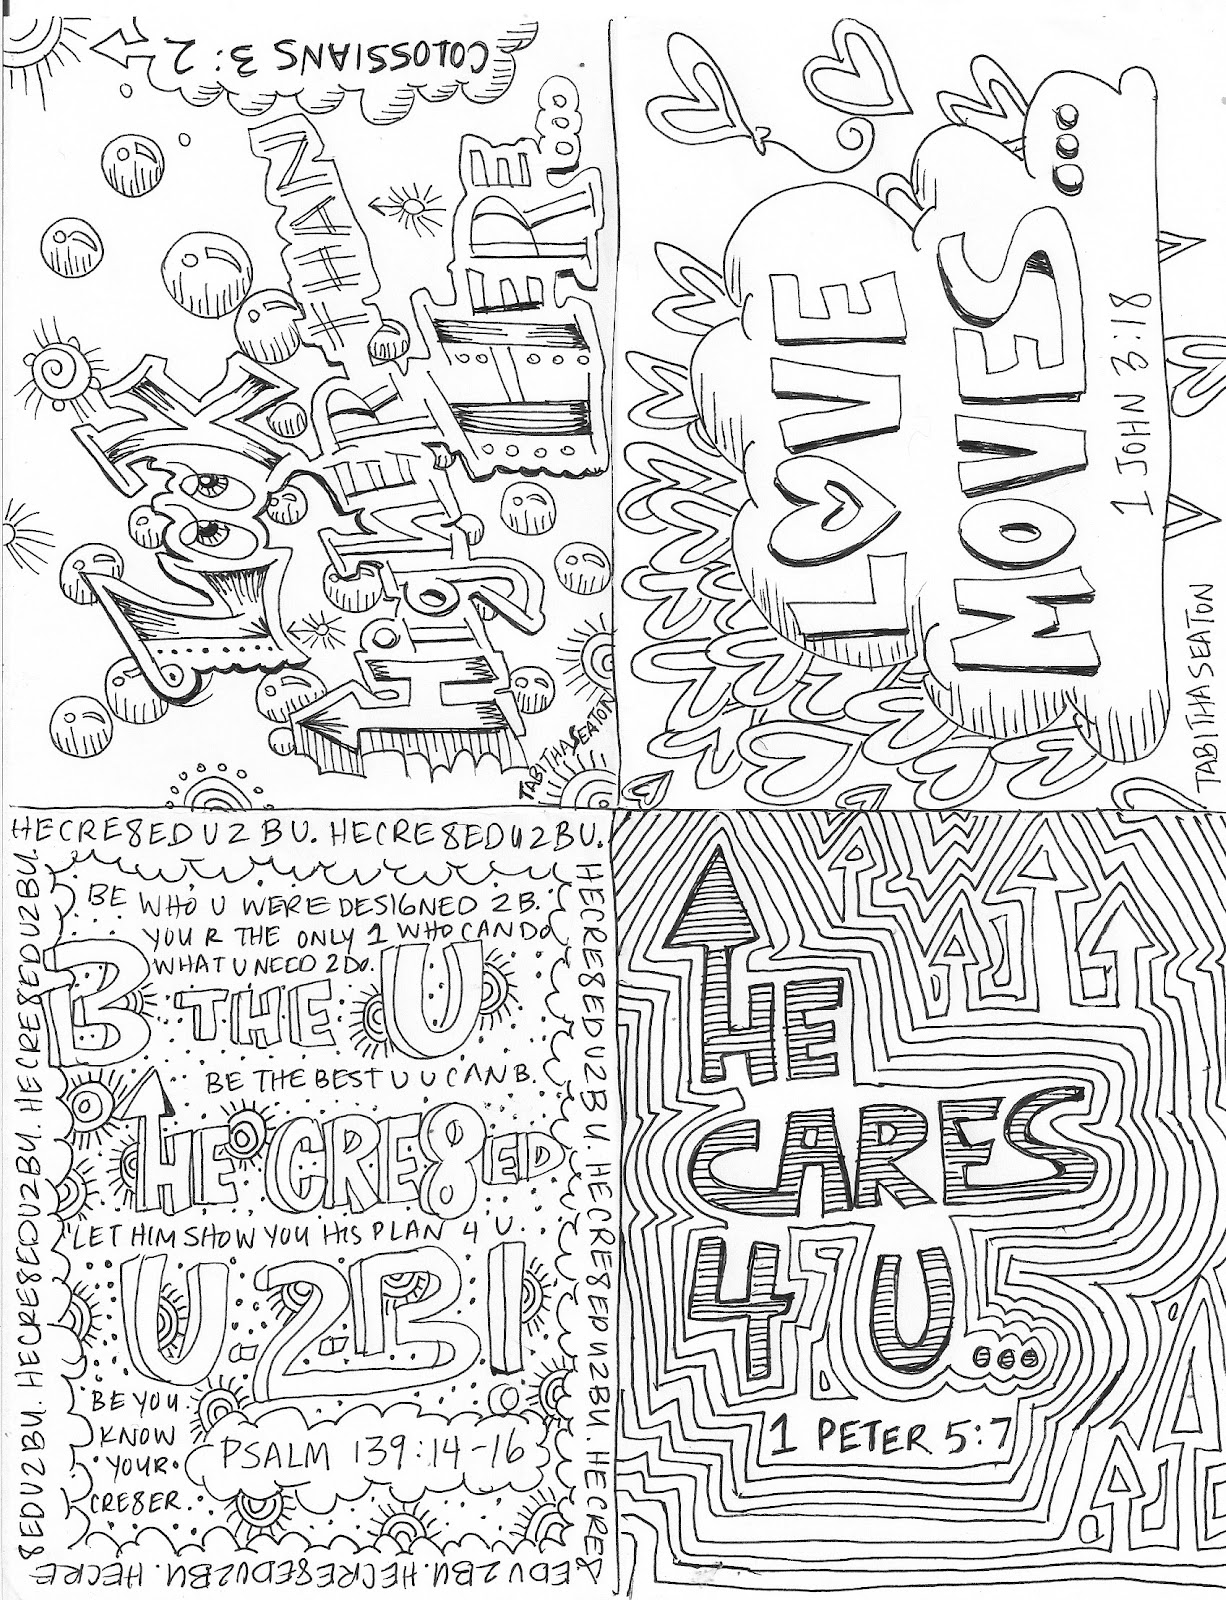 COLOSSIANS 3:2
LOOK
HigHER THAN
HERE...
TABITHA SEATON
LOVE
MOVES...
1 JOHN 3:18
TABITHA SEATON
HECRE8EDU2BU. HECRE8EDU2BU.
HECRE8EDU2BU. HECRE8EDU2BU. HECRE8
EDU2BU. HECRE8EDU2BU. HECRE
8EDU2BU. HECRE8EDU2BU. HECRE8EDU2BU.
BE WHO U WERE DESIGNED 2 B.
YOU R THE ONLY 1 WHO CAN DO
WHAT U NEED 2 DO.
B THE U
BE THE BEST U U CAN B.
HE CRE8ED
LET HIM SHOW YOU HIS PLAN 4 U.
U-2-B!
BE YOU.
KNOW
YOUR
CRE8ER.
PSALM 139:14-16
HE
CARES
4 U...
1 PETER 5:7